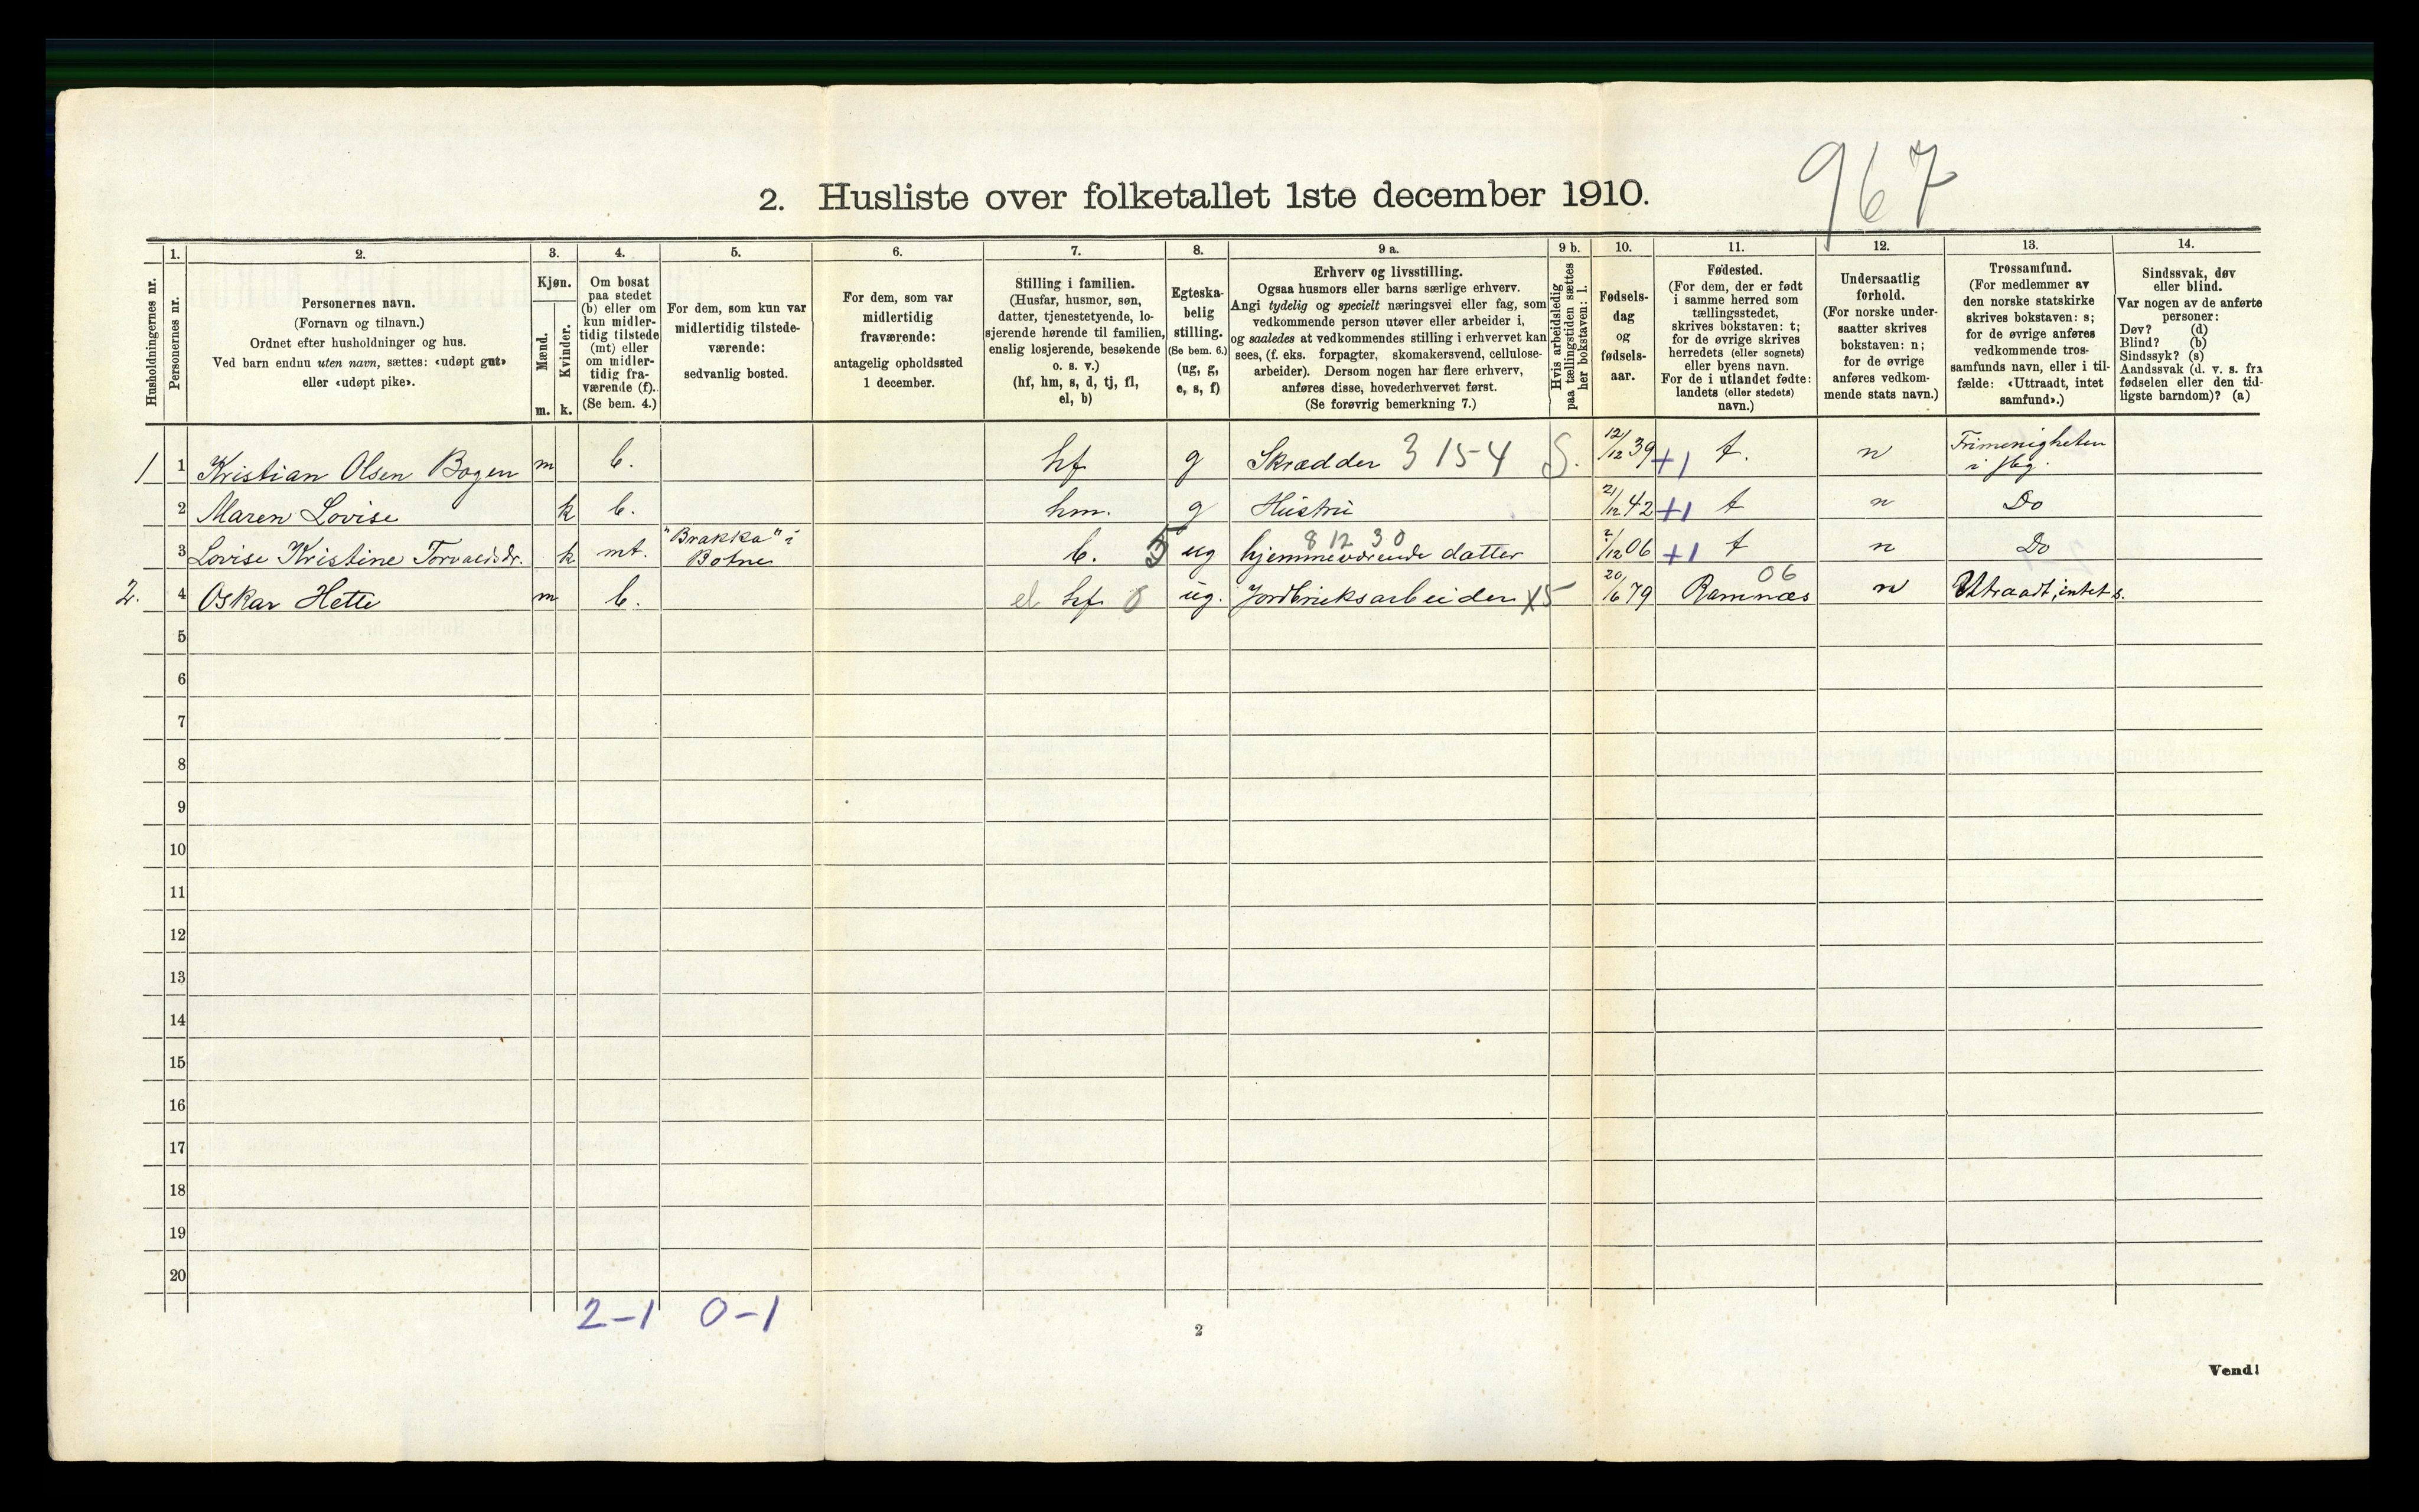 967
2. Husliste over folketallet 1ste december 1910.
1. 2. 3. 4. 5. 6. 7. 8. 9 a. 9 b. 10. 11. 12. 13. 14.
Husholdningernes nr.
Personernes nr.
Personernes navn.
(Fornavn og tilnavn.)
Ordnet efter husholdninger og hus.
Ved barn endnu uten navn, sættes: «udøpt gut»
eller «udøpt pike».
Kjøn.
Mænd.
Kvinder.
m. k.
Om bosat
paa stedet
(b) eller om
kun midler-
tidig tilstede
(mt) eller
om midler-
tidig fra-
værende (f).
(Se bem. 4.)
For dem, som kun var
midlertidig tilstede-
værende:
sedvanlig bosted.
For dem, som var
midlertidig
fraværende:
antagelig opholdssted
1 december.
Stilling i familien.
(Husfar, husmor, søn,
datter, tjenestetyende, lo-
sjerende hørende til familien,
enslig losjerende, besøkende
o. s. v.)
(hf, hm, s, d, tj, fl,
el, b)
Egteska-
belig
stilling.
(Se bem. 6.)
(ug, g,
e, s, f)
Erhverv og livsstilling.
Ogsaa husmors eller barns særlige erhverv.
Angi tydelig og specielt næringsvei eller fag, som
vedkommende person utøver eller arbeider i,
og saaledes at vedkommendes stilling i erhvervet kan
sees, (f. eks. forpagter, skomakersvend, cellulose-
arbeider). Dersom nogen har flere erhverv,
anføres disse, hovederhvervet først.
(Se forøvrig bemerkning 7.)
Hvis arbeidsledig
paa tællingstiden sættes
her bokstaven: l.
Fødsels-
dag
og
fødsels-
aar.
Fødested.
(For dem, der er født
i samme herred som
tællingsstedet,
skrives bokstaven: t;
for de øvrige skrives
herredets (eller sognets)
eller byens navn.
For de i utlandet fødte:
landets (eller stedets)
navn.)
Undersaatlig
forhold.
(For norske under-
saatter skrives
bokstaven: n;
for de øvrige
anføres vedkom-
mende stats navn.)
Trossamfund.
(For medlemmer av
den norske statskirke
skrives bokstaven: s;
for de øvrige anføres
vedkommende tros-
samfunds navn, eller i til-
fælde: «Uttraadt, intet
samfund».)
Sindssvak, døv
eller blind.
Var nogen av de anførte
personer:
Døv? (d)
Blind? (b)
Sindssyk? (s)
Aandssvak (d. v. s. fra
fødselen eller den tid-
ligste barndom)? (a)
1 1 Kristian Olsen Bogen m b. hf g Skrædder 3 15-4 S. 12/12 39 +1 t. n Frimenigheten
i Jbg.
2 Maren Lovise k b. hm. g Hustru 21/12 42 +1 t n Do
3 Lovise Kristine Torvaldsdr. k mt. "Brakka" i
Botne b. 5 ug hjemmeværende datter 8 12 30 2/12 06 +1 t n Do
2. 4 Oskar Hette m b. el hf 0 ug. Jordbruksarbeider X5 20/6 79 Ramnæs 06 n Uttraadt, intet s.
5
6
7
8
9
10
11
12
13
14
15
16
17
18
19
20
2-1 0-1
2
Vend!